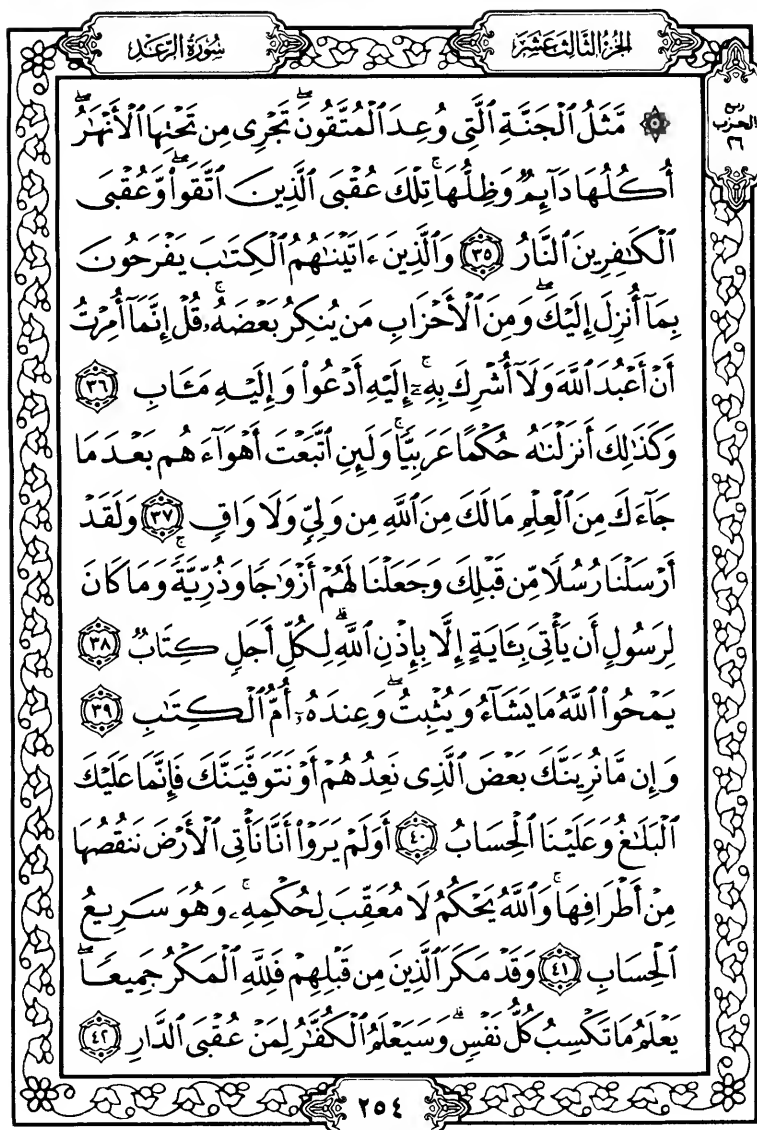 الجزء الثالث عشر
سورة الرعد
ربع
الحزب
٢٦
۞ مَّثَلُ ٱلْجَنَّةِ ٱلَّتِى وُعِدَ ٱلْمُتَّقُونَ ۖ تَجْرِى مِن تَحْتِهَا ٱلْأَنْهَٰرُ ۖ
أُكُلُهَا دَآئِمٌ وَظِلُّهَا ۚ تِلْكَ عُقْبَى ٱلَّذِينَ ٱتَّقَوا۟ ۖ وَّعُقْبَى
ٱلْكَٰفِرِينَ ٱلنَّارُ ٣٥ وَٱلَّذِينَ ءَاتَيْنَٰهُمُ ٱلْكِتَٰبَ يَفْرَحُونَ
بِمَآ أُنزِلَ إِلَيْكَ ۖ وَمِنَ ٱلْأَحْزَابِ مَن يُنكِرُ بَعْضَهُۥ ۚ قُلْ إِنَّمَآ أُمِرْتُ
أَنْ أَعْبُدَ ٱللَّهَ وَلَآ أُشْرِكَ بِهِۦٓ ۚ إِلَيْهِ أَدْعُوا۟ وَإِلَيْهِ مَـَٔابِ ٣٦
وَكَذَٰلِكَ أَنزَلْنَٰهُ حُكْمًا عَرَبِيًّا ۚ وَلَئِنِ ٱتَّبَعْتَ أَهْوَآءَهُم بَعْدَمَا
جَآءَكَ مِنَ ٱلْعِلْمِ مَالَكَ مِنَ ٱللَّهِ مِن وَلِىٍّ وَلَا وَاقٍ ٣٧ وَلَقَدْ
أَرْسَلْنَا رُسُلًا مِّن قَبْلِكَ وَجَعَلْنَا لَهُمْ أَزْوَٰجًا وَذُرِّيَّةً ۚ وَمَا كَانَ
لِرَسُولٍ أَن يَأْتِىَ بِـَٔايَةٍ إِلَّا بِإِذْنِ ٱللَّهِ ۗ لِكُلِّ أَجَلٍ كِتَابٌ ٣٨
يَمْحُوا۟ ٱللَّهُ مَا يَشَآءُ وَيُثْبِتُ ۖ وَعِندَهُۥٓ أُمُّ ٱلْكِتَٰبِ ٣٩
وَإِن مَّا نُرِيَنَّكَ بَعْضَ ٱلَّذِى نَعِدُهُمْ أَوْ نَتَوَفَّيَنَّكَ فَإِنَّمَا عَلَيْكَ
ٱلْبَلَٰغُ وَعَلَيْنَا ٱلْحِسَابُ ٤٠ أَوَلَمْ يَرَوْا۟ أَنَّا نَأْتِى ٱلْأَرْضَ نَنقُصُهَا
مِنْ أَطْرَافِهَا ۚ وَٱللَّهُ يَحْكُمُ لَا مُعَقِّبَ لِحُكْمِهِۦ ۚ وَهُوَ سَرِيعُ
ٱلْحِسَابِ ٤١ وَقَدْ مَكَرَ ٱلَّذِينَ مِن قَبْلِهِمْ فَلِلَّهِ ٱلْمَكْرُ جَمِيعًا ۖ
يَعْلَمُ مَا تَكْسِبُ كُلُّ نَفْسٍ ۗ وَسَيَعْلَمُ ٱلْكُفَّٰرُ لِمَنْ عُقْبَى ٱلدَّارِ ٤٢
٢٥٤